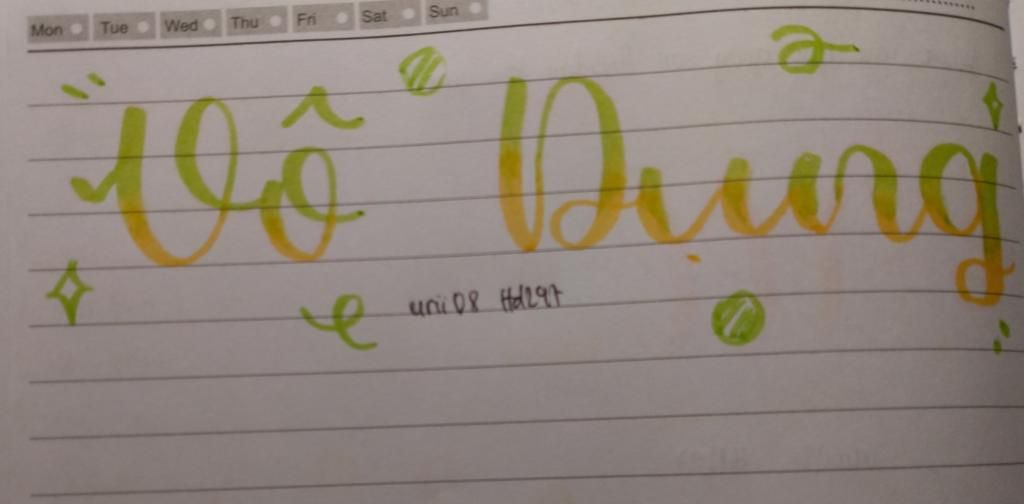 Mon Tue Wed Thu Fri Sat Sun
Vô Dụng
unii08 Hd297